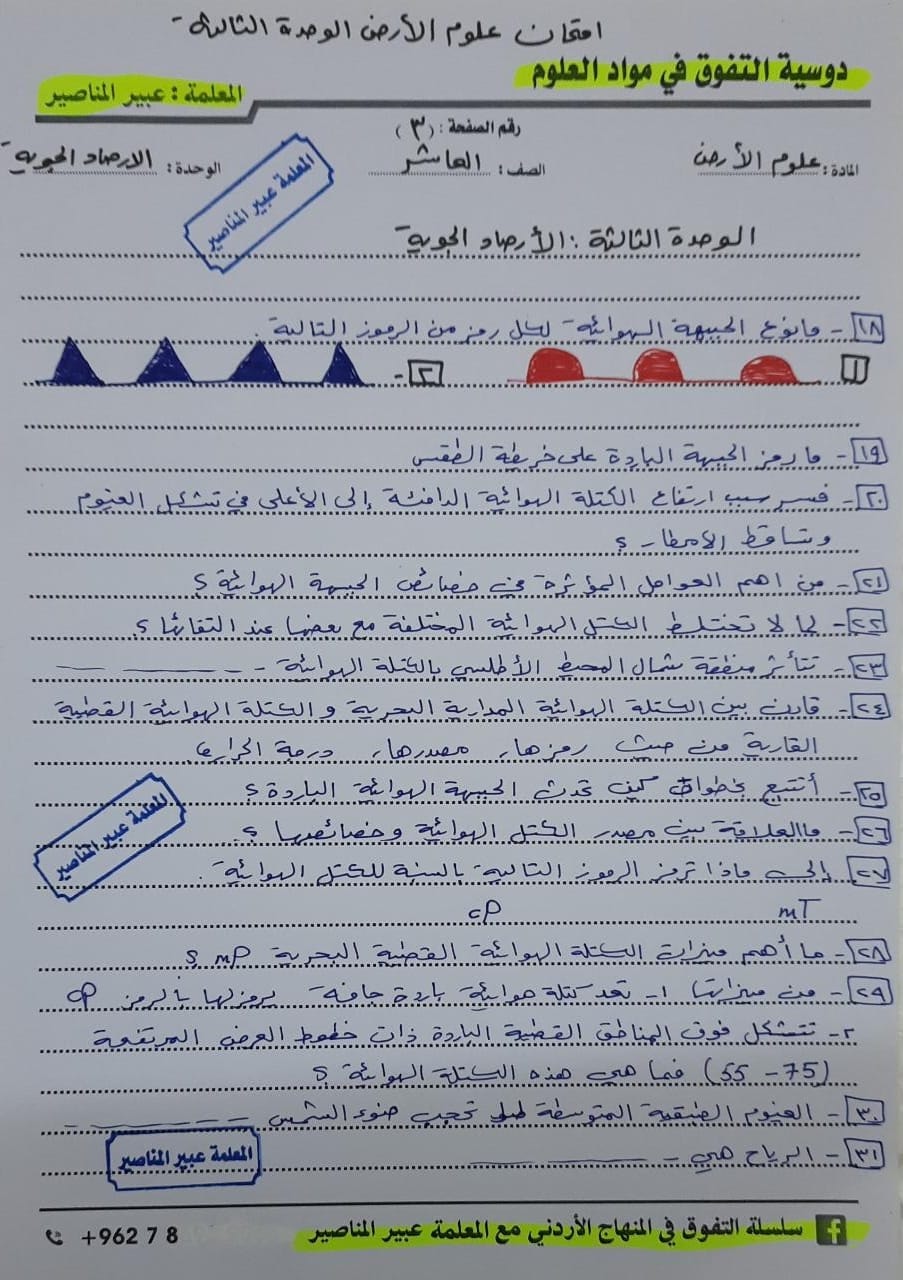 امتحان علوم الأرض الوحدة الثالثة
دوسية التفوق في مواد العلوم
المعلمة : عبير المناصير
رقم الصفحة : (٣)
المادة : علوم الأرض
الصف : العاشر
الوحدة : الارصاد الجوية
المعلمة عبير المناصير
الوحدة الثالثة : الأرصاد الجوية
١٨ - مانوع الجبهة الهوائية لكل رمز من الرموز التالية .
١
٢ -
١٩ - ما رمز الجبهة الباردة على خريطة الطقس
٢٠ - فسر سبب ارتفاع الكتلة الهوائية الدافئة إلى الأعلى في تشكل الغيوم
وتساقط الامطار ؟
٢١ - من اهم العوامل المؤثرة في خصائص الجبهة الهوائية ؟
٢٢ - لما لا تختلط الكتل الهوائية المختلفة مع بعضها عند التقائها ؟
٢٣ - تتأثر منطقة شمال المحيط الأطلسي بالكتلة الهوائية
٢٤ - قارن بين الكتلة الهوائية المدارية البحرية و الكتلة الهوائية القطبية
القارية من حيث رمزها، مصدرها، درجة الحرارة
٢٥ - أتتبع بخطوات كيف تحدث الجبهة الهوائية الباردة ؟
المعلمة عبير المناصير
٢٦ - ماالعلاقة بين مصدر الكتل الهوائية وخصائصها ؟
٢٧ - إلى ماذا ترمز الرموز التالية بالنسبة للكتل الهوائية .
mT cP
٢٨ - ما أهم ميزات الكتلة الهوائية القطبية البحرية mP ؟
٢٩ - من ميزاتها ١- تعد كتلة هوائية باردة جافة يرمز لها بالرمز cP
٢- تتشكل فوق المناطق القطبية الباردة ذات خطوط العرض المرتفعة
(55 - 75) فما هي هذه الكتلة الهوائية ؟
٣٠ - الغيوم الطبقية المتوسطة تحجب ضوء الشمس
٣١ - الرياح هي
المعلمة عبير المناصير
سلسلة التفوق في المنهاج الأردني مع المعلمة عبير المناصير
+962 7 8